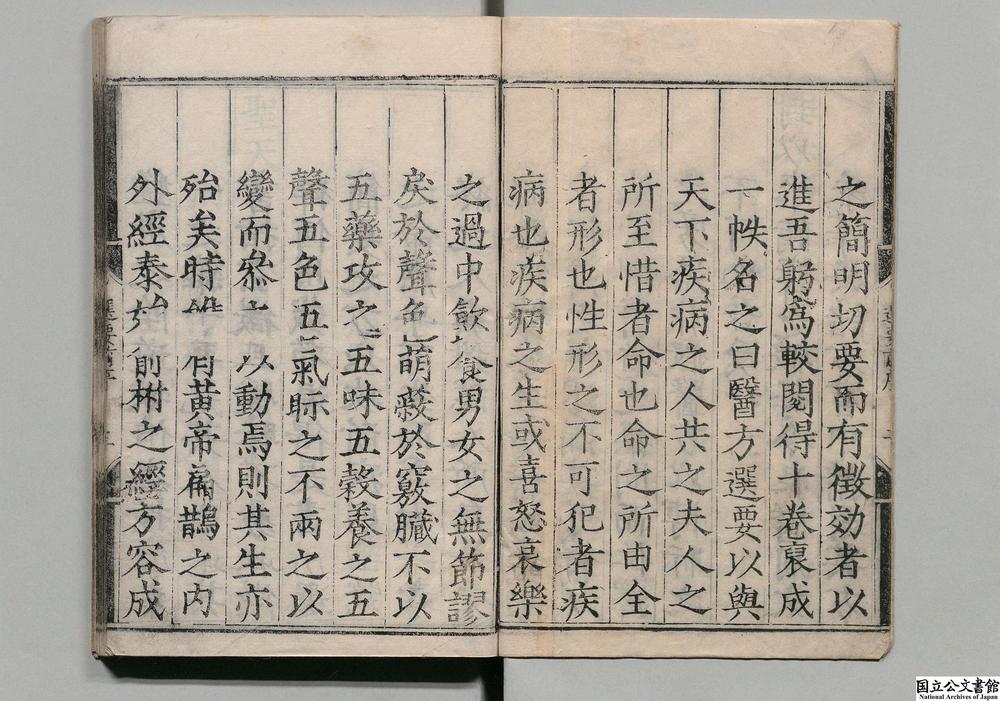 之簡明切要而有徵効者以
進吾躬爲較閱得十卷裒成
一帙名之曰醫方選要以與
天下疾病之人共之夫人之
所至惜者命也命之所由全
者形也性形之不可犯者疾
病也疾病之生或喜怒哀樂
之過中飲食男女之無節謬
戾於聲色萌蘗於竅臟不以
五藥攻之五味五穀養之五
聲五色五氣眎之不兩之以
變而叅之以動焉則其生亦
殆矣時雖有黃帝扁鵲之内
外經泰始俞柎之經方容成
国立公文書館
National Archives of Japan